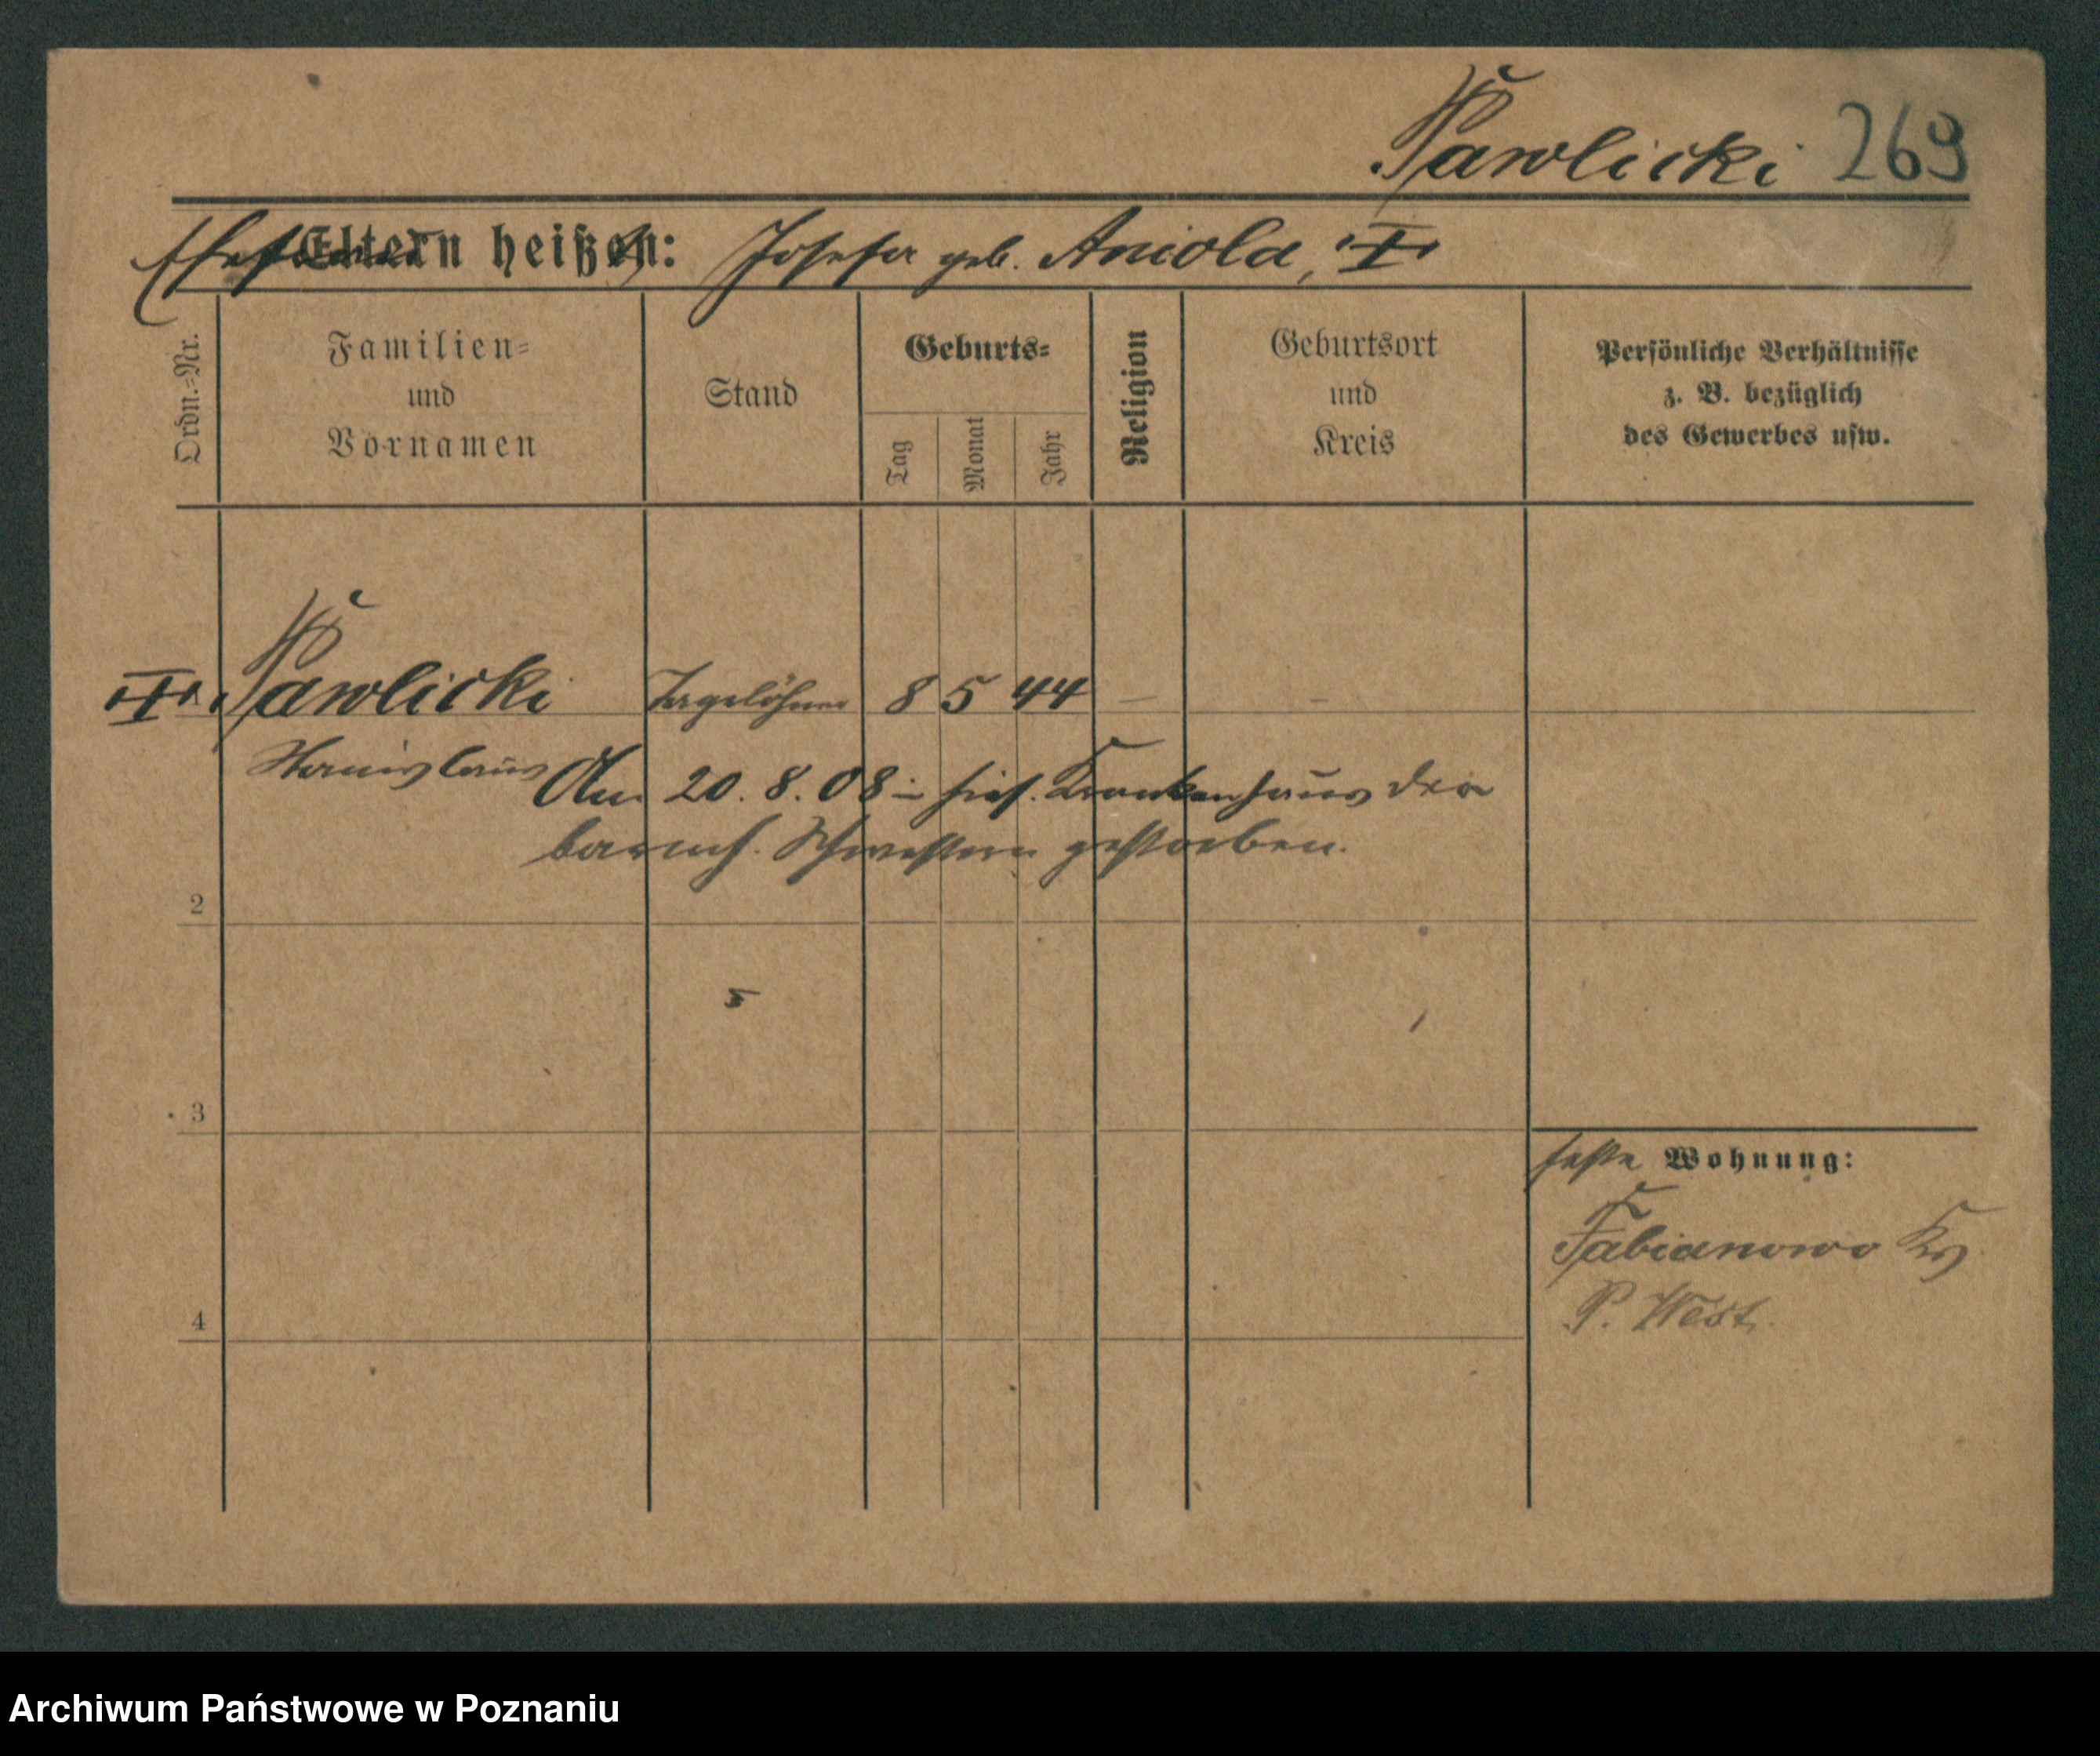 Pawlicki 269
Ehefrau Eltern heißen: Josefa geb. Aniola, †
Ordn.-Nr.
Familien-
und
Vornamen
Stand
Geburts-
Tag
Monat
Jahr
Religion
Geburtsort
und
Kreis
Persönliche Verhältnisse
z. B. bezüglich
des Gewerbes usw.
† Pawlicki Tagelöhner 8 5 44 – –
Stanislaus Am 20. 8. 08 im hies. Krankenhaus der
barmh. Schwestern gestorben.
2
3
4
feste Wohnung:
Fabianowo Krs.
P. West.
Archiwum Państwowe w Poznaniu